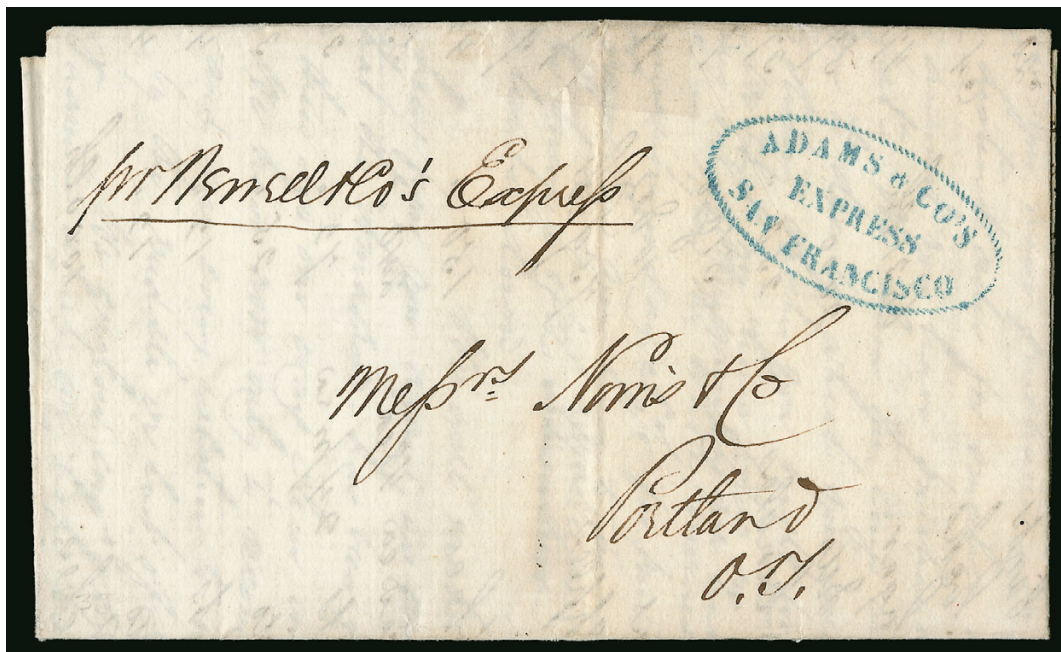 pr Newell & Co's Express
ADAMS & CO'S
EXPRESS
SAN FRANCISCO
Messrs Norris & Co
Portland
O.T.